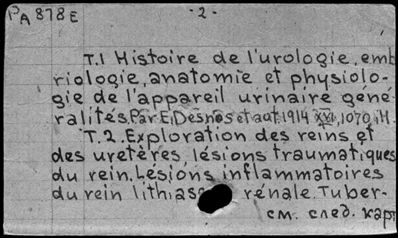 PA 878E
-2-
T.1 Histoire de l'urologie, emb
riologie, anatomie et physiolo-
gie de l'appareil urinaire géné-
ralités. Par E. Desnos et aut 1914 XVI, 1070, ill.
T.2. Exploration des reins et
des uretères lésions traumatiques
du rein. Lésions inflammatoires
du rein lithiase rénale. Tuber-
см. след. карт